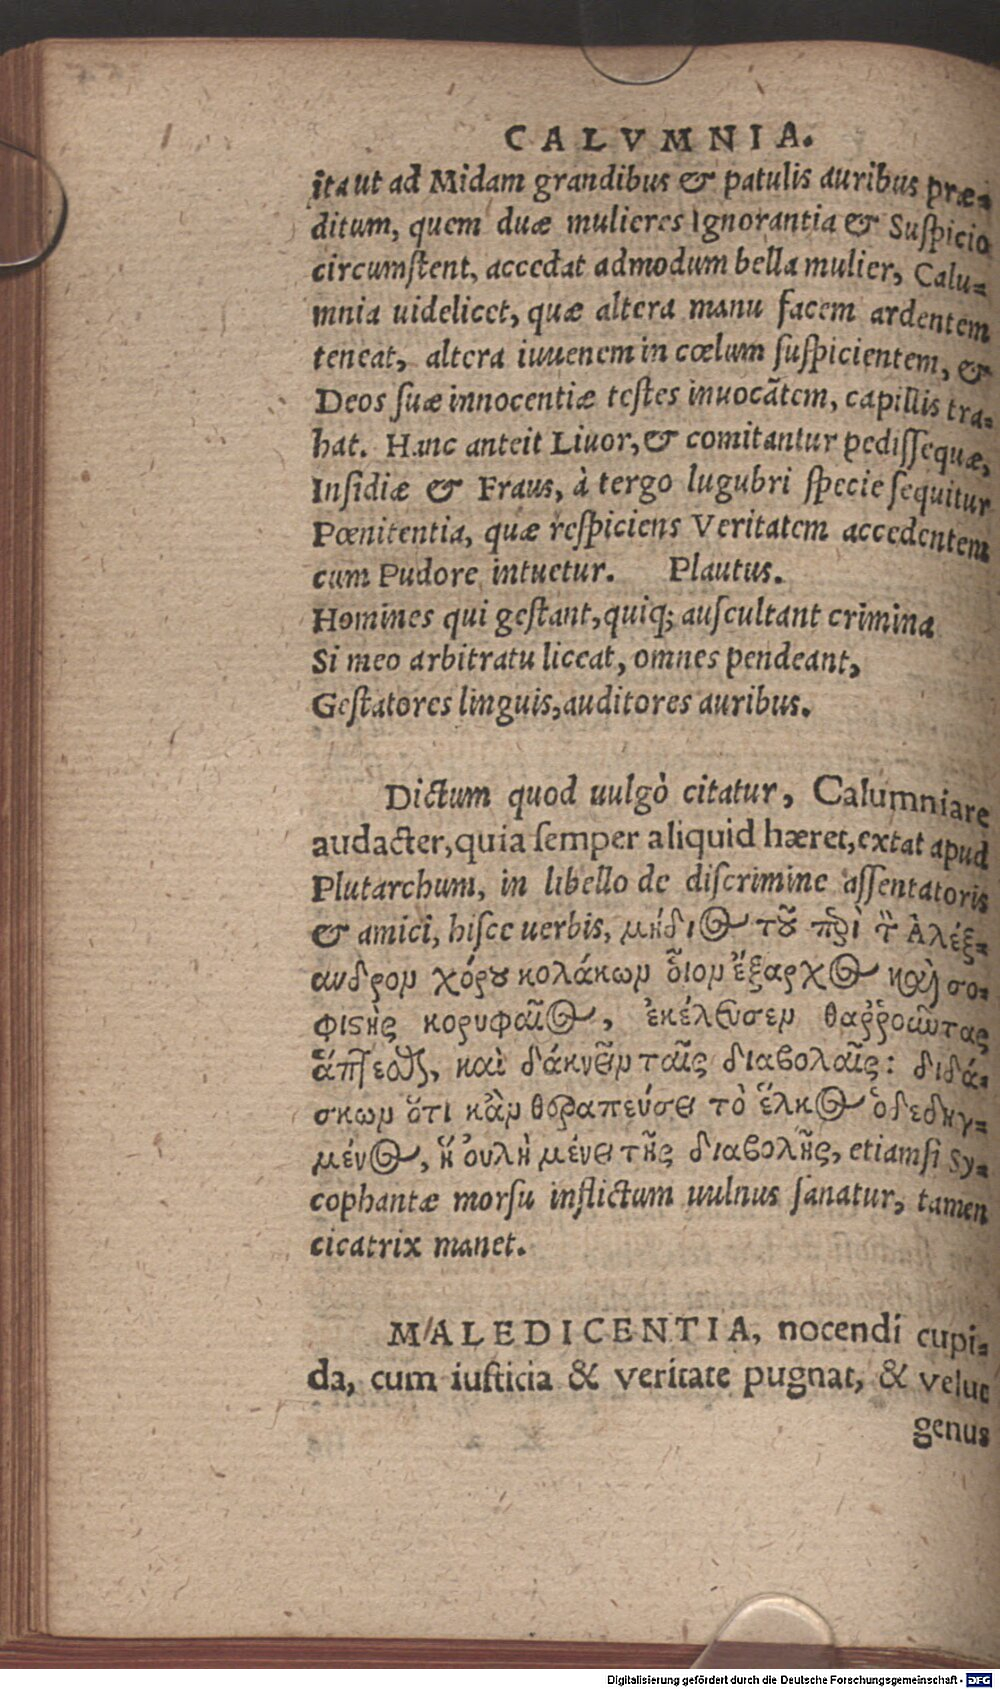 CALVMNIA.
ita ut ad Midam grandibus & patulis auribus præ-
ditum, quem duæ mulieres Ignorantia & Suspicio
circumstent, accedat admodum bella mulier, Calu-
mnia uidelicet, quæ altera manu facem ardentem
teneat, altera iuuenem in cœlum suspicientem, &
Deos suæ innocentiæ testes inuocãtem, capillis tra-
hat. Hanc anteit Liuor, & comitantur pedissequæ,
Insidiæ & Fraus, à tergo lugubri specie sequitur
Pœnitentia, quæ respiciens Veritatem accedentem
cum Pudore intuetur. Plautus.
Homines qui gestant, quiq; auscultant crimina
Si meo arbitratu liceat, omnes pendeant,
Gestatores linguis, auditores auribus.
Dictum quod uulgò citatur, Calumniare
audacter, quia semper aliquid hæret, extat apud
Plutarchum, in libello de discrimine assentatoris
& amici, hisce uerbis, μήδιος τοῦ περὶ τὸν Ἀλέξ-
ανδρον χόρου κολάκων οἷον ἔξαρχος καὶ σο-
φιστὴς κορυφαῖος, ἐκέλευσεν θαῤῥοῶντας
ἅπτεσθαι, καὶ δάκνειν ταῖς διαβολαῖς: διδά-
σκων ὅτι κἂν θεραπεύσει τὸ ἕλκος ὁ δεδηγ-
μένος, ἡ οὐλὴ μένει τῆς διαβολῆς, etiamsi Sy-
cophantæ morsu inflictum uulnus sanatur, tamen
cicatrix manet.
MALEDICENTIA, nocendi cupi-
da, cum iusticia & veritate pugnat, & velut
genus
Digitalisierung gefördert durch die Deutsche Forschungsgemeinschaft - DFG